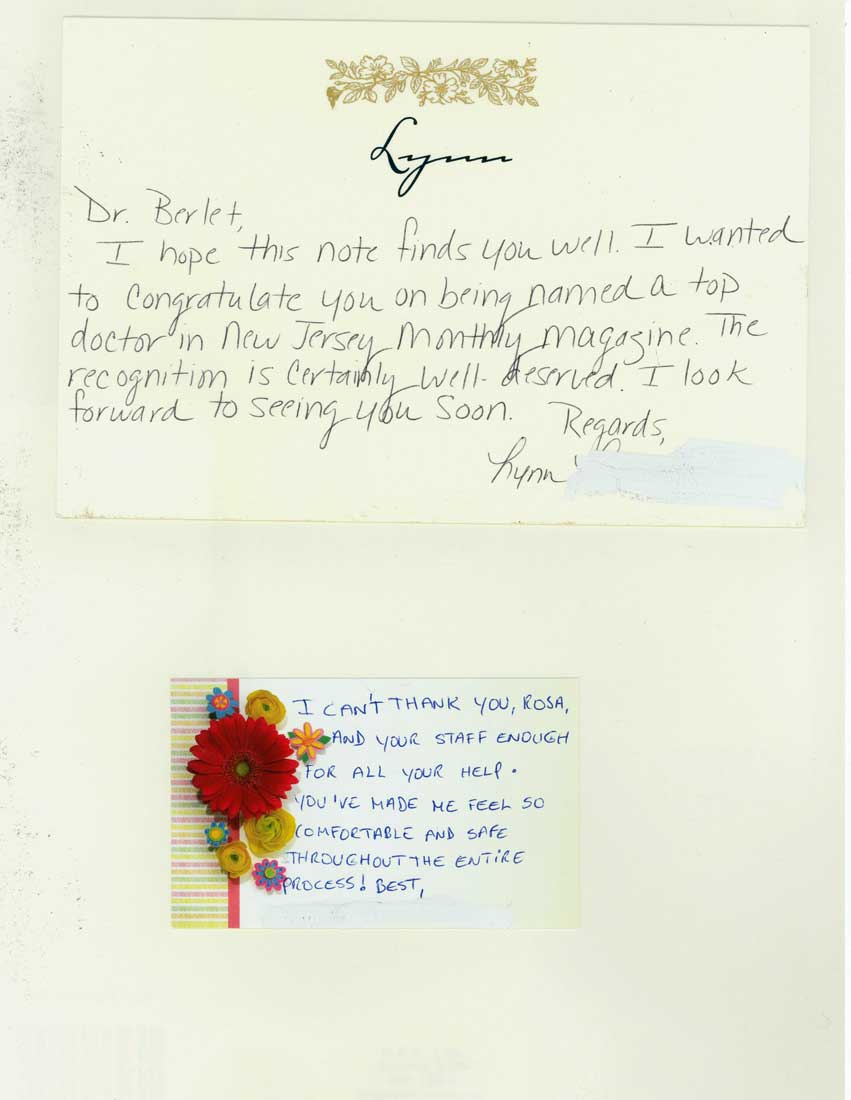 Lynn
Dr. Berlet,
I hope this note finds you well. I wanted
to congratulate you on being named a top
doctor in New Jersey Monthly magazine. The
recognition is certainly well-deserved. I look
forward to seeing you soon. Regards,
Lynn
I CAN'T THANK YOU, ROSA,
AND YOUR STAFF ENOUGH
FOR ALL YOUR HELP.
YOU'VE MADE ME FEEL SO
COMFORTABLE AND SAFE
THROUGHOUT THE ENTIRE
PROCESS! BEST,